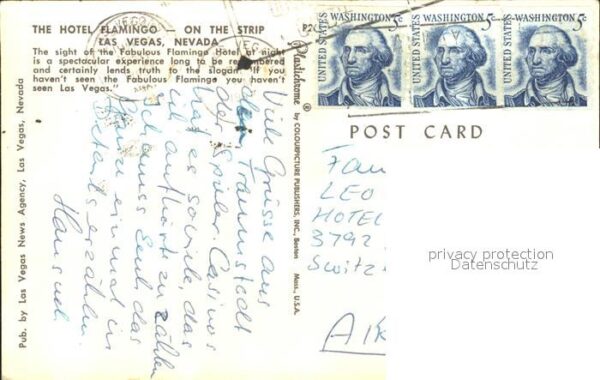 THE HOTEL FLAMINGO — ON THE STRIP
LAS VEGAS, NEVADA
The sight of the Fabulous Flamingo Hotel at night
is a spectacular experience long to be remembered
and certainly lends truth to the slogan, "If you
haven't seen the Fabulous Flamingo you haven't
seen Las Vegas."
Pub. by Las Vegas News Agency, Las Vegas, Nevada
Plastichrome ® by COLOURPICTURE PUBLISHERS, INC., Boston Mass., U.S.A.
UNITED STATES WASHINGTON 5c
UNITED STATES WASHINGTON 5c
UNITED STATES WASHINGTON 5c
POST CARD
Viele Grüsse aus
der Traumstadt
der Spieler. Casinos
hat es soviele, das
aufhört zu zählen
ich muss Euch das
einmal in
erzählen
Hansueli
Fam
LEO
HOTEL
3792
Switz
privacy protection
Datenschutz